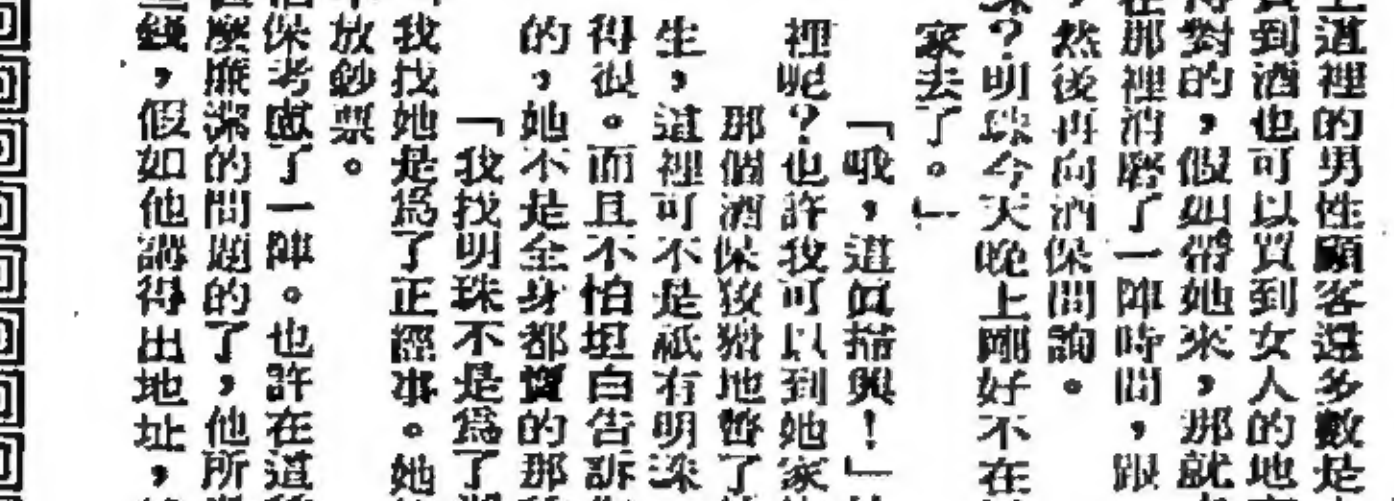 這裡的男性顧客還多數是
到酒也可以買到女人的地
對的，假如帶她來，那就
那裡消磨了一陣時間，跟
然後再向酒保問詢。
？明珠今天晚上剛好不在
家去了。」
「哦，這真掃興！」
裡呢？也許我可以到她家
那個酒保狡猾地瞥了
生，這裡可不是祇有明珠
得很。而且不怕坦白告訴
的，她不是全身都賣的那
「我找明珠不是爲了
我找她是爲了正經事。她
放鈔票。
保考慮了一陣。也許在這
麼深的問題的了，他所
錢，假如他講得出地址，